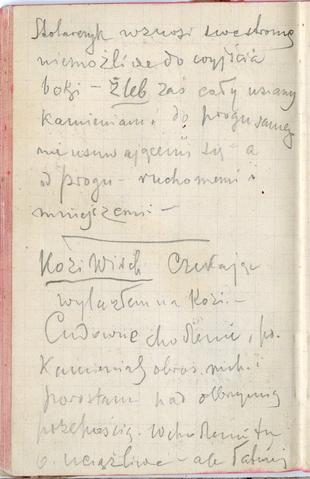 Stolarczyk wznosi swe strome
niemożliwe do wyjścia
boki – żleb zaś cały usiany
kamieniami do progu
nie usuwającemi się – a
od progu – ruchomemi i
mniejszemi –
Kozi Wierch Czekając
wylazłem na Kozi. –
Cudowne chodzenie, po
kamieniach obros. mch. i
porostami nad olbrzymią
przepaścią. Wchodzenie tu
b. uciążliwe – ale łatwiej